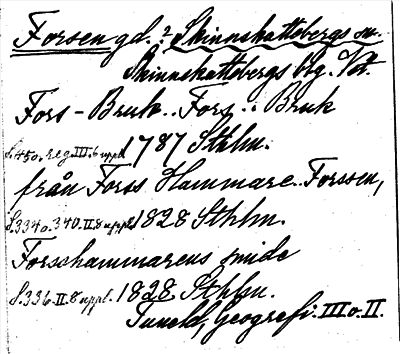 Forsen gd. i Skinnskattebergs sn.
Skinnskattebergs brg. Vstm.
Fors-Bruk.. Fors.. Bruk
S.450. reg. III. 6 uppl. 1787 Sthlm.
från Forss Hammare. Forssen,
S.334 o. 340. II. 8 uppl. 1828 Sthlm.
Forschammarens smide
S.336. II. 8 uppl. 1828 Sthlm.
Tuneld, Geografi. III o. II.